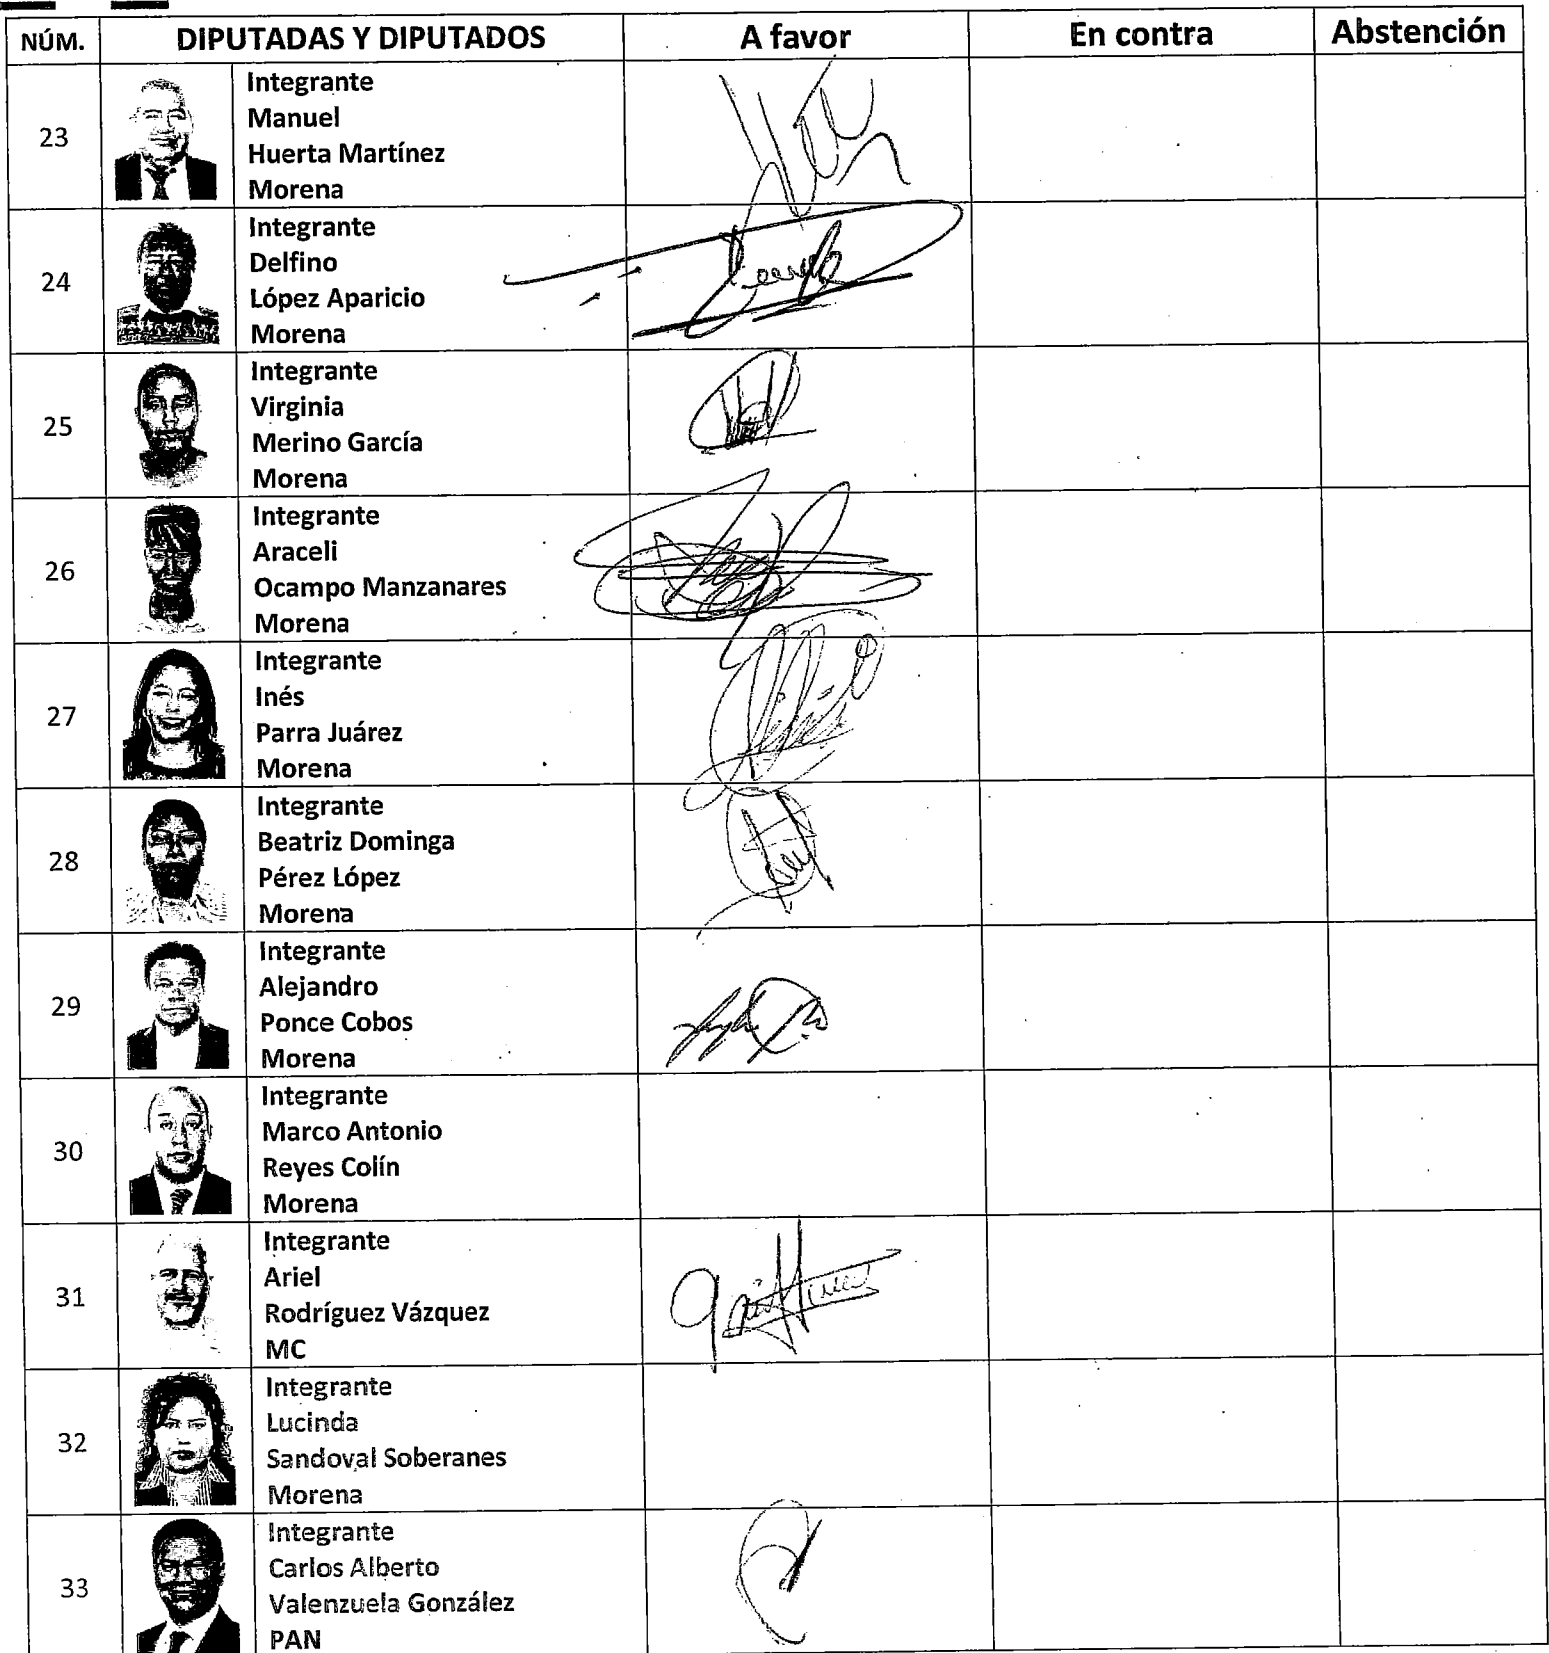 NÚM. DIPUTADAS Y DIPUTADOS A favor En contra Abstención
23
Integrante
Manuel
Huerta Martínez
Morena
24
Integrante
Delfino
López Aparicio
Morena
25
Integrante
Virginia
Merino García
Morena
26
Integrante
Araceli
Ocampo Manzanares
Morena
27
Integrante
Inés
Parra Juárez
Morena
28
Integrante
Beatriz Dominga
Pérez López
Morena
29
Integrante
Alejandro
Ponce Cobos
Morena
30
Integrante
Marco Antonio
Reyes Colín
Morena
31
Integrante
Ariel
Rodríguez Vázquez
MC
32
Integrante
Lucinda
Sandoval Soberanes
Morena
33
Integrante
Carlos Alberto
Valenzuela González
PAN